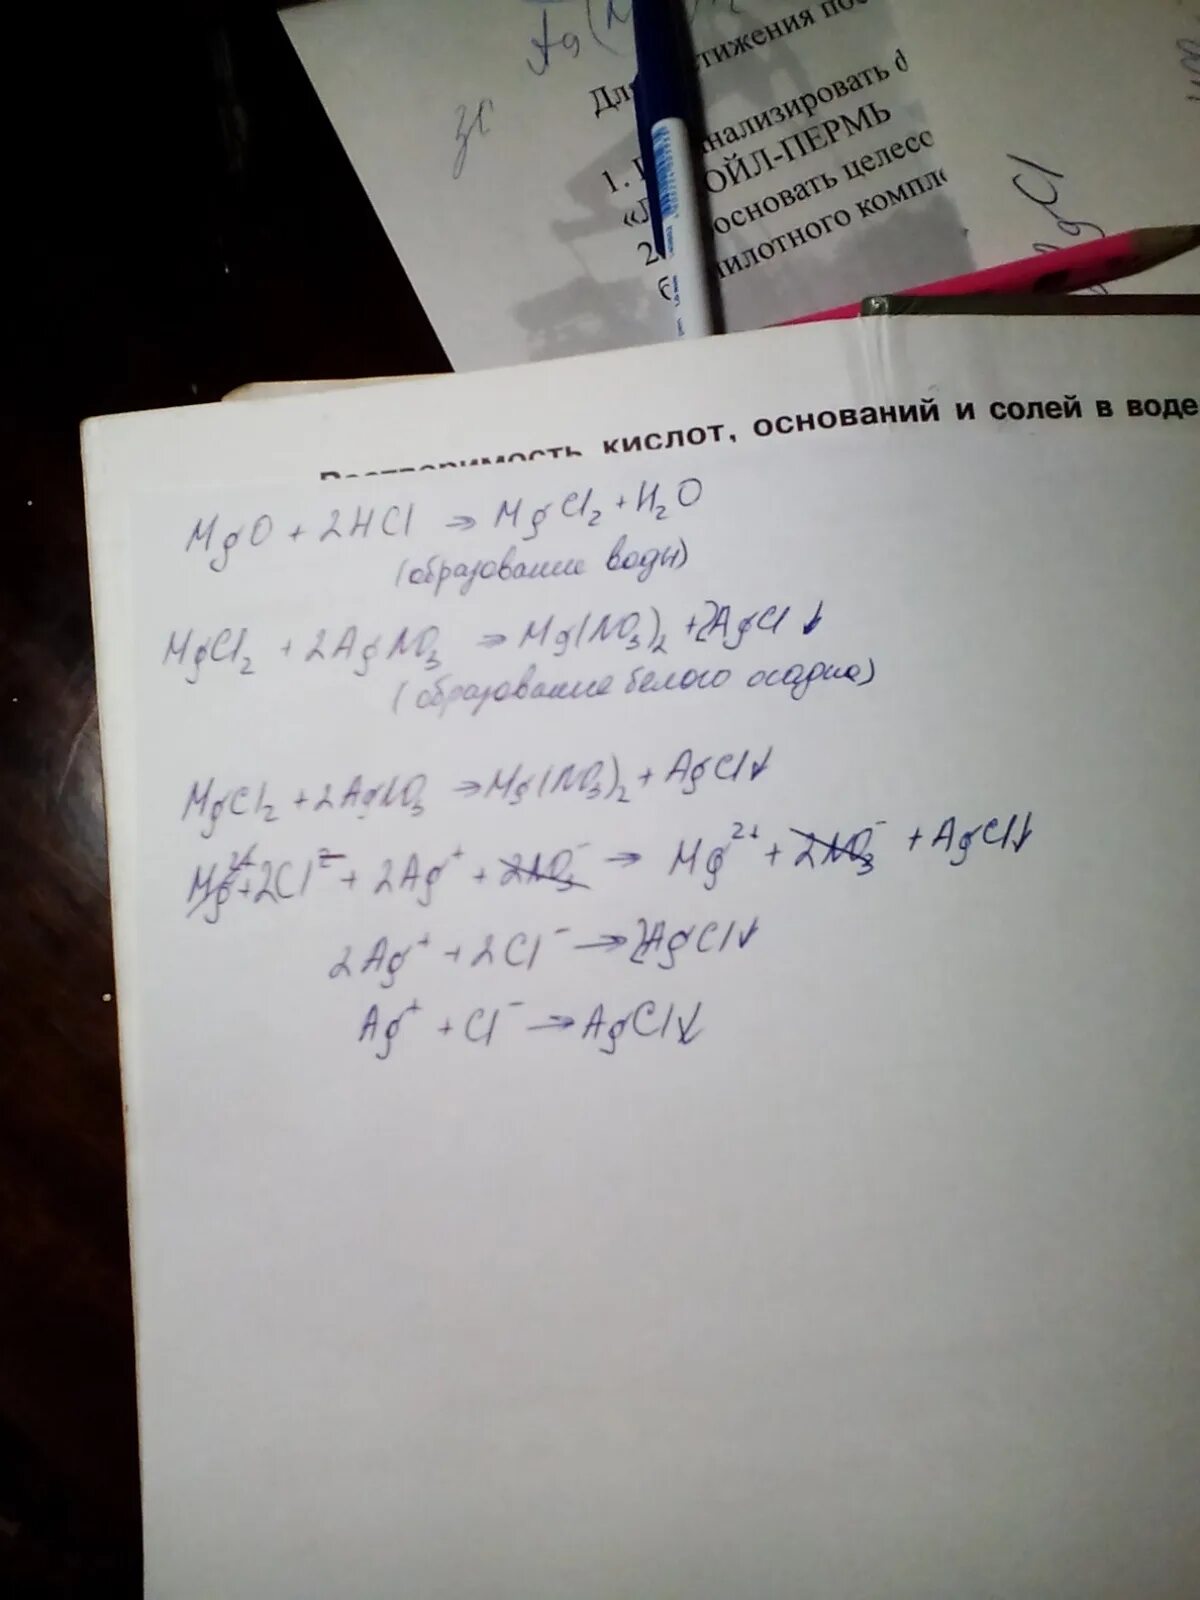 Ag(N
Дл тижения пос
ЗС
1. П нализировать ф
«Л ОЙЛ-ПЕРМЬ
2. основать целесо
б пилотного компле
gCl
Растворимость кислот, оснований и солей в воде
MgO + 2HCl → MgCl₂ + H₂O
(образование воды)
MgCl₂ + 2AgNO₃ → Mg(NO₃)₂ + 2AgCl↓
(образование белого осадка)
MgCl₂ + 2AgNO₃ → Mg(NO₃)₂ + AgCl↓
Mg²⁺ + 2Cl⁻ + 2Ag⁺ + 2NO₃⁻ → Mg²⁺ + 2NO₃⁻ + AgCl↓
2Ag⁺ + 2Cl⁻ → 2AgCl↓
Ag⁺ + Cl⁻ → AgCl↓